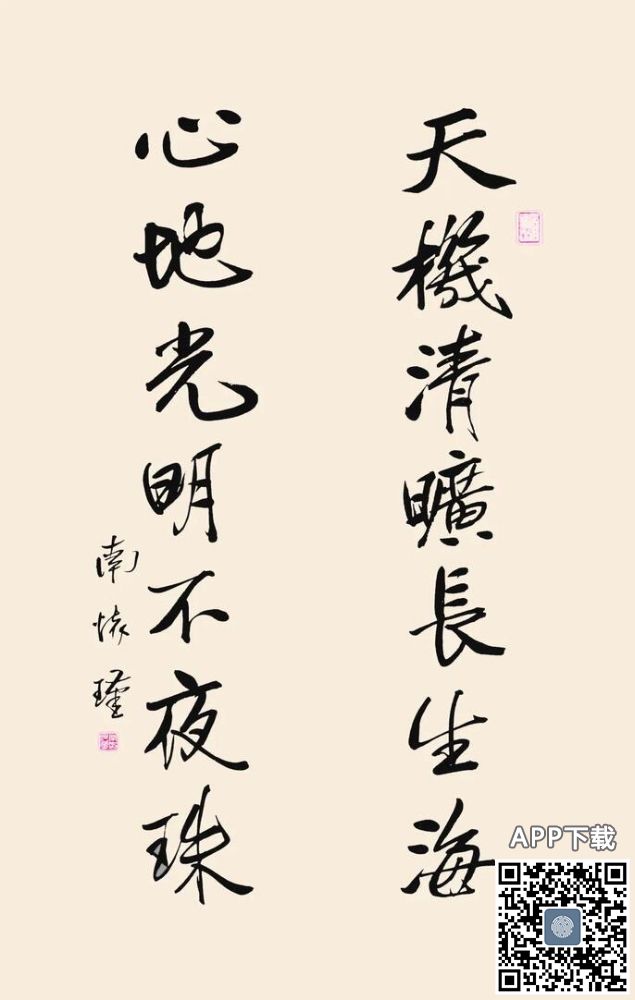 天機清曠長生海
心地光明不夜珠
南懷瑾
APP下载